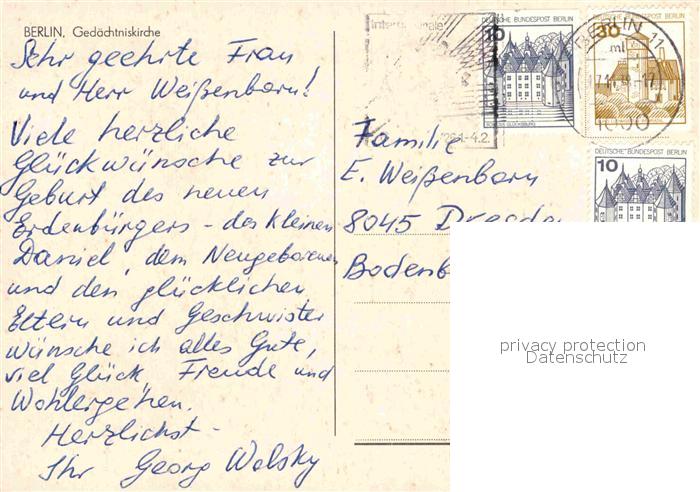 BERLIN, Gedächtniskirche
Sehr geehrte Frau
und Herr Weißenborn!
Viele herzliche
Glückwünsche zur
Geburt des neuen
Erdenbürgers – des kleinen
Daniel, dem Neugeborenen
und den glücklichen
Eltern und Geschwister
wünsche ich alles Gute,
viel Glück Freude und
Wohlergehen.
Herzlichst –
Ihr Georg Walsky
10 DEUTSCHE BUNDESPOST BERLIN
SCHLOSS GLÜCKSBURG
30
BERLIN 11
1000
1.-4.2.
DEUTSCHE BUNDESPOST BERLIN
10
Familie
E. Weißenborn
8045 Dresden
Bodenb
privacy protection
Datenschutz